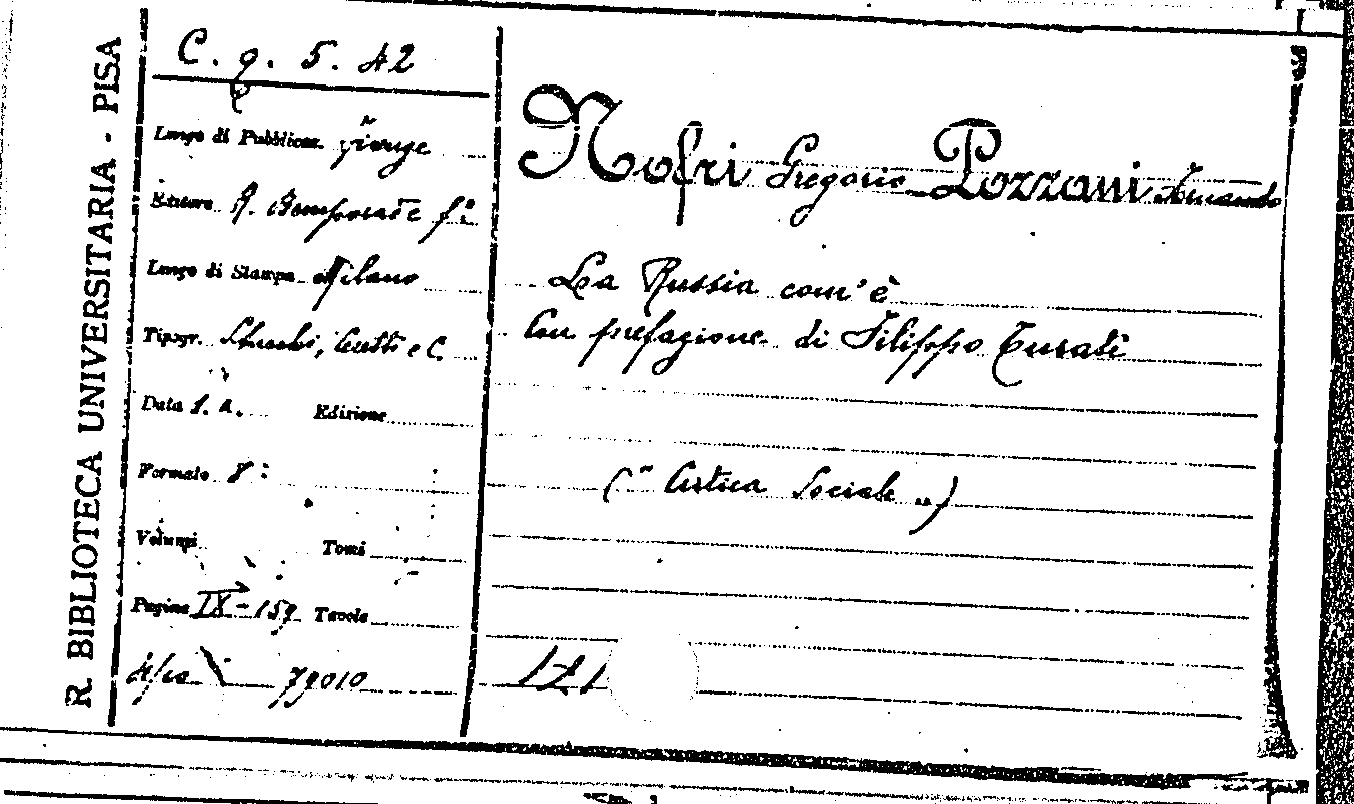 R. BIBLIOTECA UNIVERSITARIA - PISA
C. g. 5. 42
Luogo di Pubblicaz. Firenze
Editore R. Bemporad e f.º
Luogo di Stampa Milano
Tipogr. e C.
Data s. a. Edizione
Formato 8º
Volumi Tomi
Pagine IX-159 Tavole
79010
Nofri Gregorio - Pozzani Fernando
La Russia com'è
Con prefazione di Filippo Turati
(" Critica Sociale „)